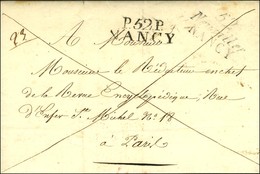 P.52.P.
NANCY
NANCY
A Monsieur
Monsieur le Rédacteur en chef
de la Revue Encyclopédique, Rue
d'Enfer St. Michel No. 18
à Paris